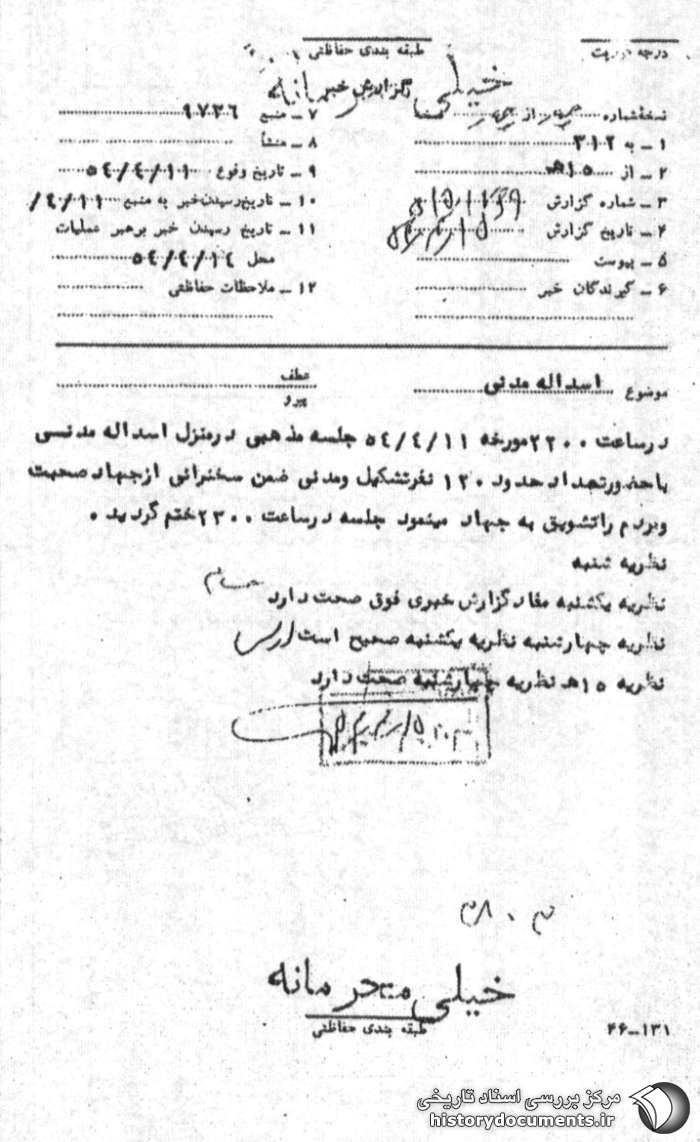 درجه فوریت
طبقه بندی حفاظتی
خیلی محرمانه
گزارش خبر
نسخه شماره از
۷ ـ منبع ۹۷۳۶
۱ ـ به ۳۱۲
۸ ـ منشأ
۲ ـ از ۱۵ هـ
۹ ـ تاریخ وقوع ۵۴/۴/۱۱
۳ ـ شماره گزارش
۱۰ ـ تاریخ رسیدن خبر به منبع ۴/۱۱/
۴ ـ تاریخ گزارش
۱۱ ـ تاریخ رسیدن خبر برهبر عملیات
محل ۵۴/۴/۱۴
۵ ـ پیوست
۶ ـ گیرندگان خبر
۱۲ ـ ملاحظات حفاظتی
موضوع اسداله مدنی
عطف
پیرو
درساعت ۲۲۰۰ مورخه ۵۴/۴/۱۱ جلسه مذهبی درمنزل اسداله مدنسی
باحضورتعداد حدود ۱۲۰ نفرتشکیل ومدنی ضمن سخنرانی ازجهاد صحبت
ومردم راتشویق به جهاد مینمود جلسه درساعت ۲۳۰۰ ختم گردید .
نظریه شنبه
نظریه یکشنبه مفاد گزارش خبری فوق صحت دارد
نظریه چهارشنبه نظریه یکشنبه صحیح است
نظریه ۱۵ هـ نظریه چهارشنبه صحت دارد
خیلی محرمانه
طبقه بندی حفاظتی
۴۶-۱۳۱
مرکز بررسی اسناد تاریخی
historydocuments.ir